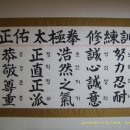 正佑太極拳修練訓
努力忍耐
誠心誠意
浩然之氣
正道正派
恭敬尊重